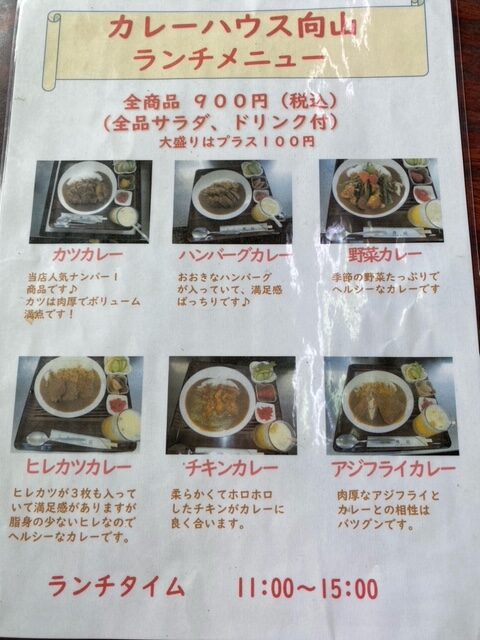 カレーハウス向山
ランチメニュー
全商品 ９００円（税込）
（全品サラダ、ドリンク付）
大盛りはプラス１００円
カツカレー
当店人気ナンバー１
商品です♪
カツは肉厚でボリューム
満点です！
ハンバーグカレー
おおきなハンバーグ
が入っていて、満足感
ばっちりです♪
野菜カレー
季節の野菜たっぷりで
ヘルシーなカレーです
ヒレカツカレー
ヒレカツが３枚も入って
いて満足感がありますが
脂身の少ないヒレなので
ヘルシーなカレーです。
チキンカレー
柔らかくてホロホロ
したチキンがカレーに
良く合います。
アジフライカレー
肉厚なアジフライと
カレーとの相性は
バツグンです。
ランチタイム 11:00～15:00